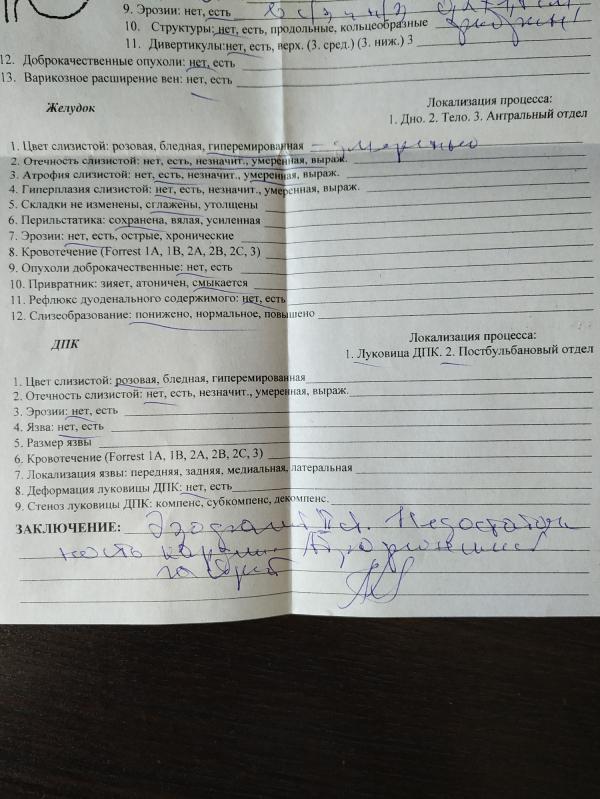 9. Эрозии: нет, есть в с/3 и н/3
10. Структуры: нет, есть, продольные, кольцеобразные
11. Дивертикулы: нет, есть, верх. (3. сред.) (3. ниж.) 3
12. Доброкачественные опухоли: нет, есть
13. Варикозное расширение вен: нет, есть
Желудок
Локализация процесса:
1. Дно. 2. Тело. 3. Антральный отдел
1. Цвет слизистой: розовая, бледная, гиперемированная - умеренно
2. Отечность слизистой: нет, есть, незначит., умеренная, выраж.
3. Атрофия слизистой: нет, есть, незначит., умеренная, выраж.
4. Гиперплазия слизистой: нет, есть, незначит., умеренная, выраж.
5. Складки не изменены, сглажены, утолщены
6. Перильстатика: сохранена, вялая, усиленная
7. Эрозии: нет, есть, острые, хронические
8. Кровотечение (Forrest 1A, 1B, 2A, 2B, 2C, 3)
9. Опухоли доброкачественные: нет, есть
10. Привратник: зияет, атоничен, смыкается
11. Рефлюкс дуоденального содержимого: нет, есть
12. Слизеобразование: понижено, нормальное, повышено
ДПК
Локализация процесса:
1. Луковица ДПК. 2. Постбульбановый отдел
1. Цвет слизистой: розовая, бледная, гиперемированная
2. Отечность слизистой: нет, есть, незначит., умеренная, выраж.
3. Эрозии: нет, есть
4. Язва: нет, есть
5. Размер язвы
6. Кровотечение (Forrest 1A, 1B, 2A, 2B, 2C, 3)
7. Локализация язвы: передняя, задняя, медиальная, латеральная
8. Деформация луковицы ДПК: нет, есть
9. Стеноз луковицы ДПК: компенс, субкомпенс, декомпенс.
ЗАКЛЮЧЕНИЕ: Эзофагит II ст. Недостаточ
ность кардии. Атрофический
гастрит